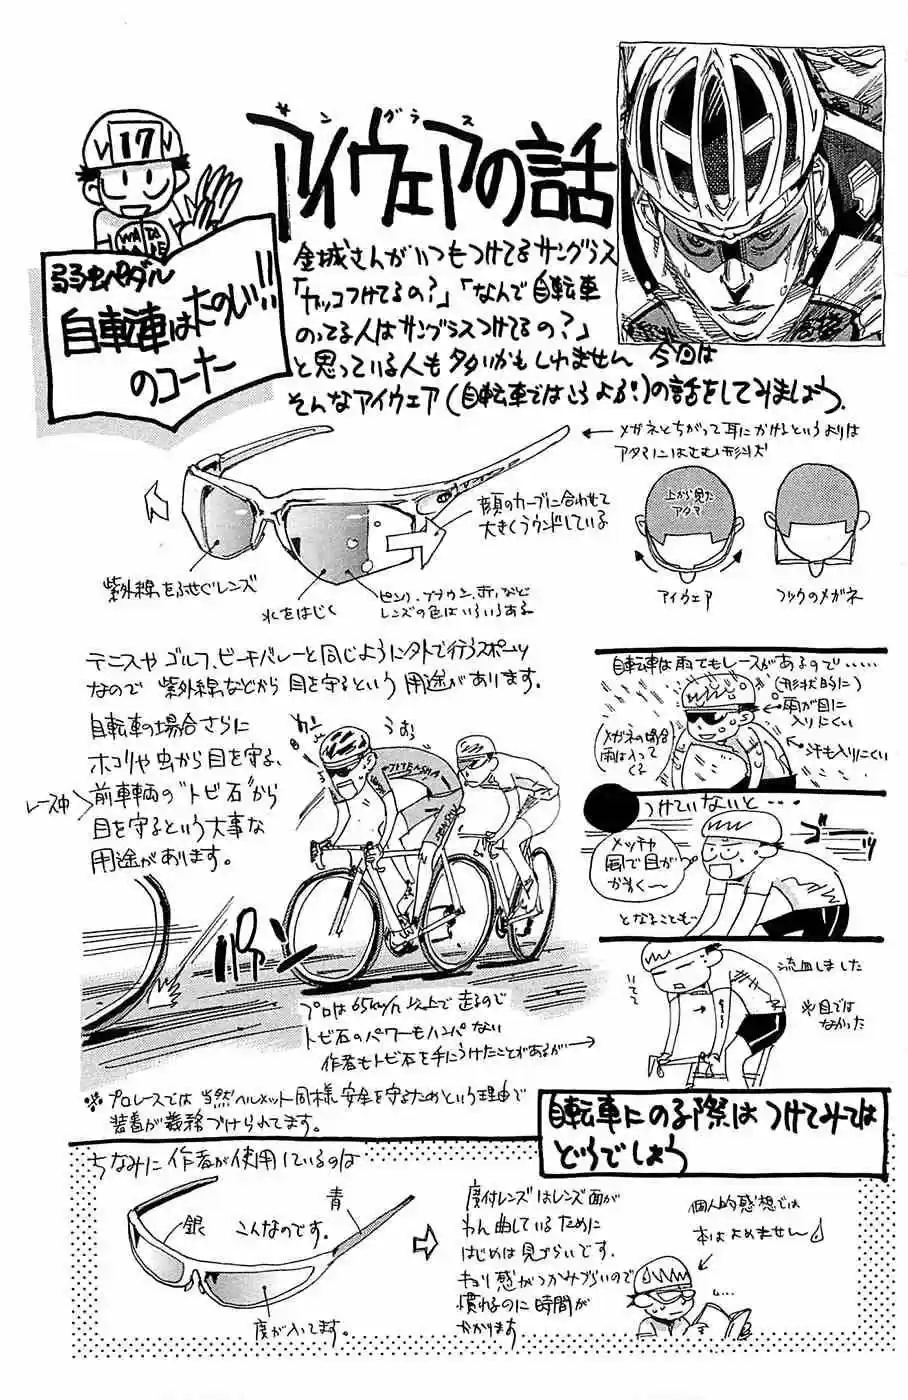 17
WATANABE
弱虫ペダル
自転車はたのしい!!
のコーナー
サングラス
アイウェアの話
金城さんがいつもつけてるサングラス
「カッコつけてるの?」「なんで自転車
のってる人はサングラスつけてるの?」
と思っている人も多いかもしれません 今回は
そんなアイウェア(自転車ではこうよぶ!)の話をしてみましょう.
←メガネとちがって耳にかけるというよりは
アタマにはさむ形状だ
顔のカーブに合わせて
大きくラウンドしている
紫外線をふせぐレンズ
水をはじく
ピンク、ブラウン、赤、など
レンズの色はいろいろある
上から見た
アタマ
アイウェア
フツウのメガネ
テニスや ゴルフ、ビーチバレーと同じように外で行うスポーツ
なので 紫外線などから 目を守るという 用途があります.
自転車の場合さらに
ホコリや虫から目を守る、
レース中
前車輌の"トビ石"から
目を守るという大事な
用途があります。
うおぉ
プロは65km/h 以上で走るので
トビ石のパワーもハンパない
作者もトビ石を手にうけたことがあるが→
自転車は雨でもレースがあるので……
(形状的に)
雨が目に
入りにくい
汗も入りにくい
(メガネの場合
雨は入って
くる)
つけていないと…
メッチャ
風で目が
かわく〜
となることも…
いてて
流血しました
※目では
なかった
※プロレースでは 当然ヘルメット同様、安全を守るためという理由で
装着が義務づけられてます。
自転車にのる際は つけてみては
どうでしょう
ちなみに 作者が使用しているのは
銀
こんなのです.
青
度が入ってます。
度付レンズはレンズ面が
わん曲しているために
はじめは見づらいです.
キョリ感がつかみづらいので
慣れるのに 時間が
かかります
個人的感想では
本はよめません